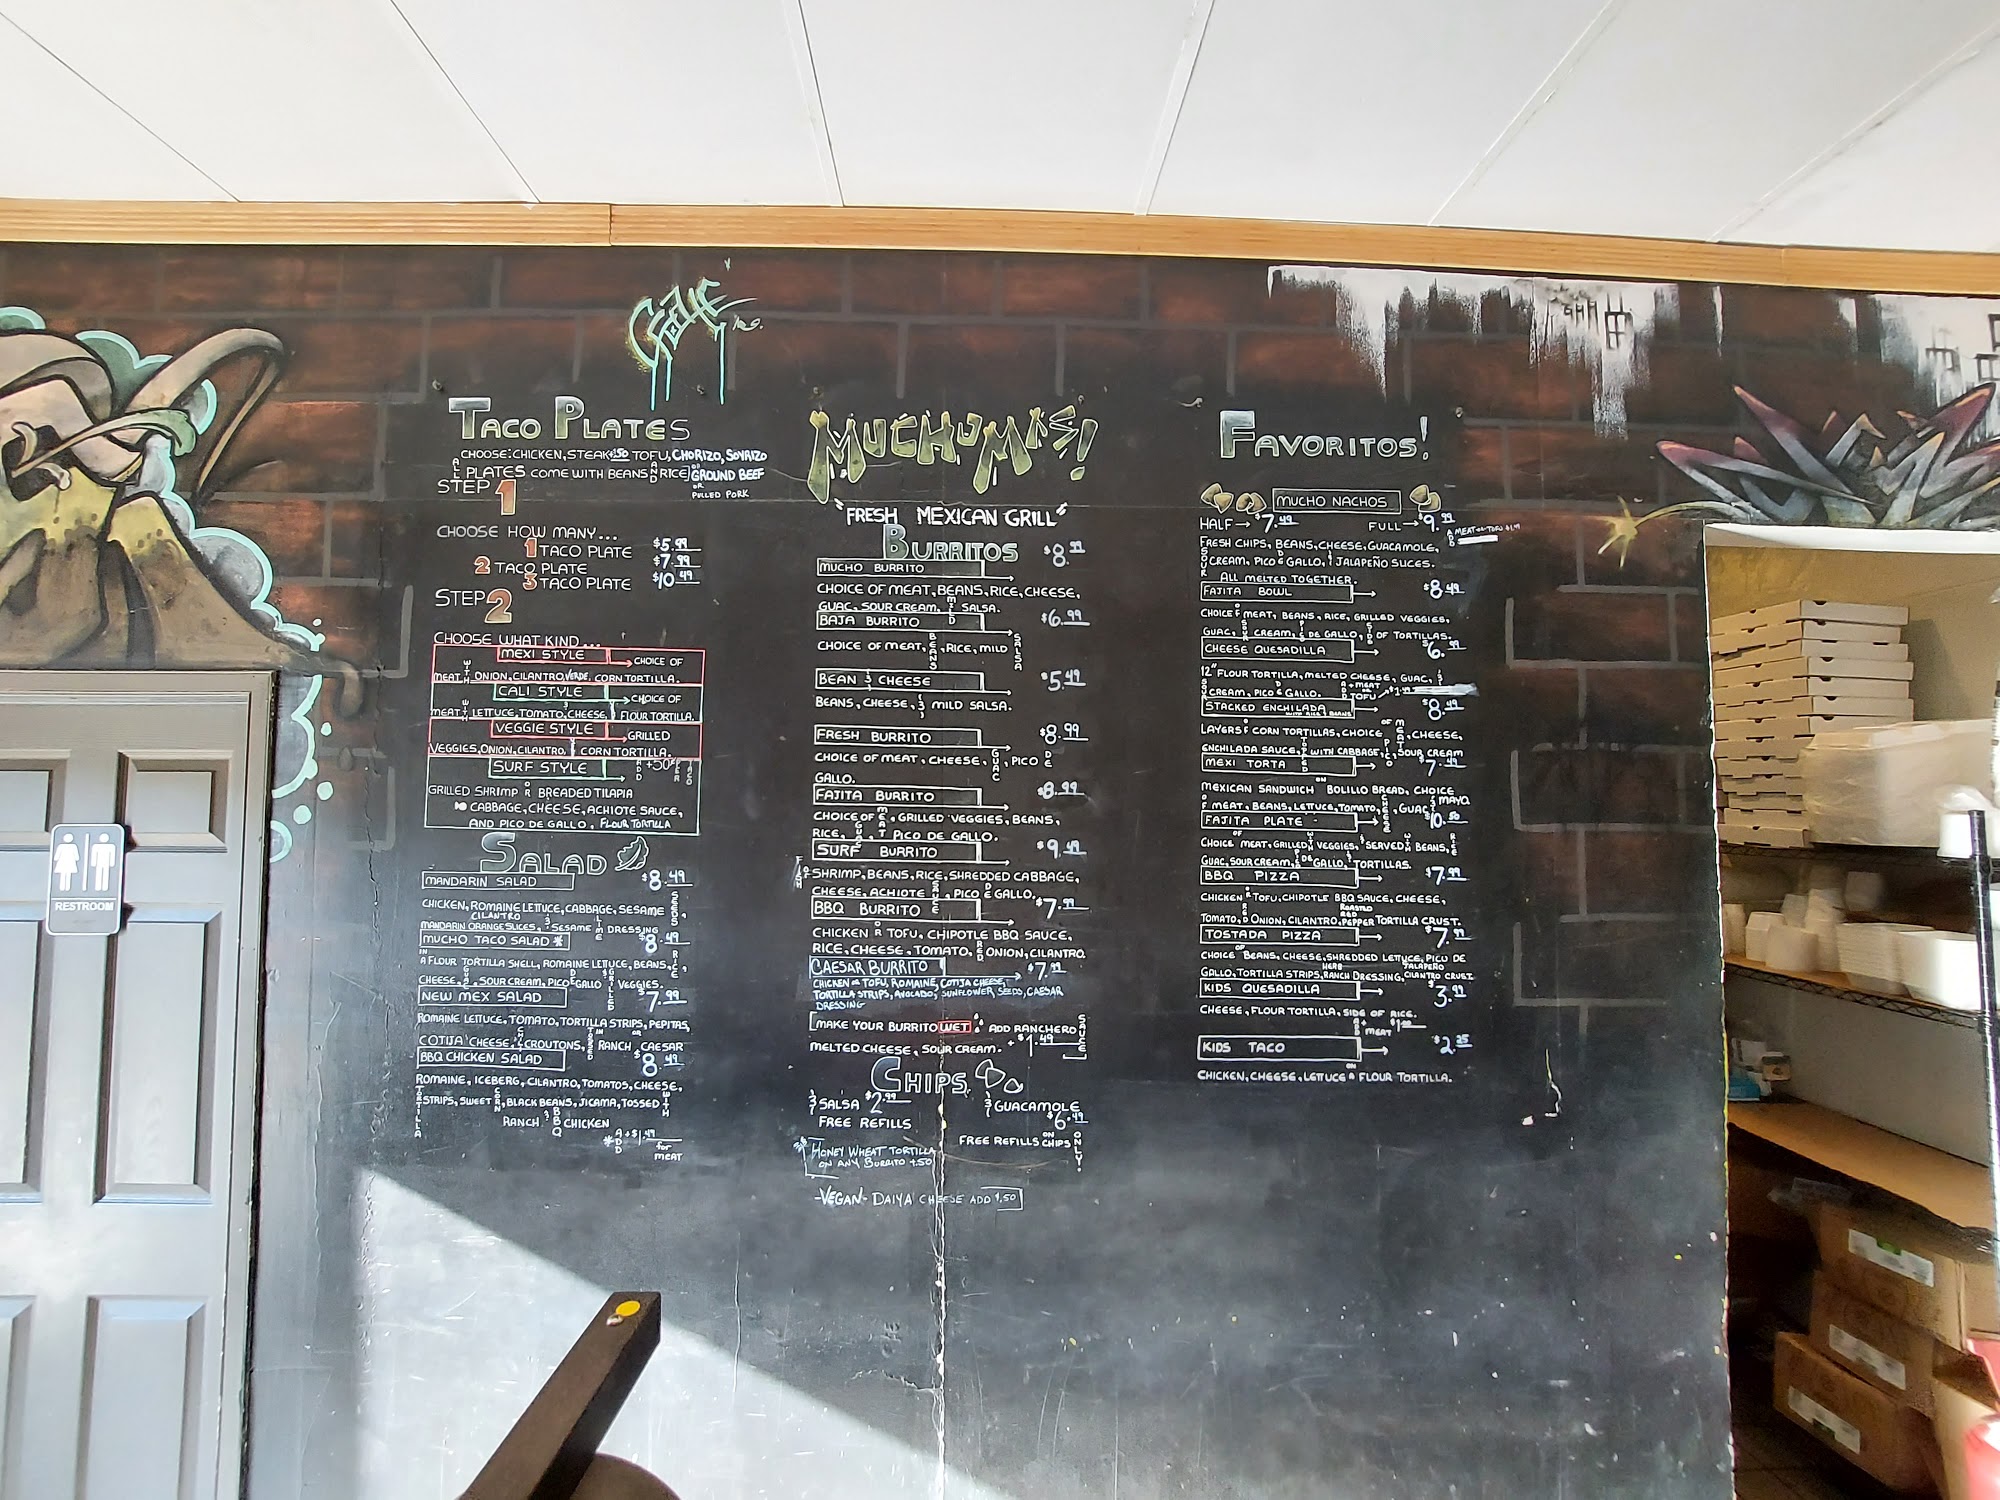 RESTROOM
TACO PLATES
CHOOSE: CHICKEN, STEAK +.50 TOFU, CHORIZO, SOYRIZO
ALL PLATES COME WITH BEANS AND RICE OR GROUND BEEF
OR
PULLED PORK
STEP 1
CHOOSE HOW MANY...
1 TACO PLATE $5.99
2 TACO PLATE $7.99
3 TACO PLATE $10.49
STEP 2
CHOOSE WHAT KIND...
MEXI STYLE CHOICE OF
MEAT WITH ONION, CILANTRO, VERDE, CORN TORTILLA.
CALI STYLE CHOICE OF
MEAT WITH LETTUCE, TOMATO, CHEESE, FLOUR TORTILLA.
VEGGIE STYLE GRILLED
VEGGIES, ONION, CILANTRO, CORN TORTILLA.
SURF STYLE ADD +50¢ PER TACO
GRILLED SHRIMP OR BREADED TILAPIA
CABBAGE, CHEESE, ACHIOTE SAUCE,
AND PICO DE GALLO, FLOUR TORTILLA
SALAD
MANDARIN SALAD $8.49
CHICKEN, ROMAINE LETTUCE, CABBAGE, SESAME SEEDS
MANDARIN ORANGE SLICES, SESAME CILANTRO LIME DRESSING
MUCHO TACO SALAD * $8.49
IN A FLOUR TORTILLA SHELL, ROMAINE LETTUCE, BEANS, RICE,
CHEESE, GUAC, SOUR CREAM, PICO DE GALLO GRILLED VEGGIES.
NEW MEX SALAD $7.99
ROMAINE LETTUCE, TOMATO, TORTILLA STRIPS, PEPITAS,
COTIJA CHEESE, CROUTONS, TOSSED IN RANCH OR CAESAR
BBQ CHICKEN SALAD $8.49
ROMAINE, ICEBERG, CILANTRO, TOMATOS, CHEESE,
TORTILLA STRIPS, SWEET CORN, BLACK BEANS, JICAMA, TOSSED WITH
RANCH BBQ CHICKEN
* ADD +$1.49
for
MEAT
MUCHO MAS!
"FRESH MEXICAN GRILL"
BURRITOS
MUCHO BURRITO $8.99
CHOICE OF MEAT, BEANS, RICE, CHEESE,
GUAC, SOUR CREAM, MILD SALSA.
BAJA BURRITO $6.99
CHOICE OF MEAT, BEANS, RICE, MILD SALSA
BEAN & CHEESE $5.49
BEANS, CHEESE, & MILD SALSA.
FRESH BURRITO $8.99
CHOICE OF MEAT, CHEESE, GUAC, PICO DE
GALLO.
FAJITA BURRITO $8.99
CHOICE OF MEAT, GRILLED VEGGIES, BEANS,
RICE, GUAC, PICO DE GALLO.
SURF BURRITO $9.49
FISH OR SHRIMP, BEANS, RICE, SHREDDED CABBAGE,
CHEESE, ACHIOTE SAUCE, PICO DE GALLO.
BBQ BURRITO $7.99
CHICKEN OR TOFU, CHIPOTLE BBQ SAUCE,
RICE, CHEESE, TOMATO, RED ONION, CILANTRO.
CAESAR BURRITO $7.99
CHICKEN OR TOFU, ROMAINE, COTIJA CHEESE,
TORTILLA STRIPS, AVOCADO, SUNFLOWER SEEDS, CAESAR
DRESSING
MAKE YOUR BURRITO WET ADD RANCHERO SAUCE
MELTED CHEESE, SOUR CREAM. +$1.49
CHIPS
& SALSA $2.99 & GUACAMOLE $6.49
FREE REFILLS FREE REFILLS ON CHIPS ONLY!
HONEY WHEAT TORTILLA
ON ANY BURRITO +.50
-VEGAN- DAIYA CHEESE ADD 1.50
FAVORITOS!
MUCHO NACHOS
HALF $7.49 FULL $9.99 ADD MEAT OR TOFU
FRESH CHIPS, BEANS, CHEESE, GUACAMOLE,
SOUR CREAM, PICO DE GALLO, & JALAPEÑO SLICES.
ALL MELTED TOGETHER.
FAJITA BOWL $8.49
CHOICE OF MEAT, BEANS, RICE, GRILLED VEGGIES,
GUAC, SOUR CREAM, PICO DE GALLO, SIDE OF TORTILLAS.
CHEESE QUESADILLA $6.99
12" FLOUR TORTILLA, MELTED CHEESE, GUAC,
SOUR CREAM, PICO DE GALLO. ADD MEAT OR TOFU $1.49
STACKED ENCHILADA WITH RICE & BEANS $8.49
LAYERS OF CORN TORTILLAS, CHOICE OF MEAT, CHEESE,
ENCHILADA SAUCE, TOPPED WITH CABBAGE, PICO, SOUR CREAM
MEXI TORTA $7.49
MEXICAN SANDWICH ON BOLILLO BREAD, CHOICE
OF MEAT, BEANS, LETTUCE, TOMATO, CHEESE, GUAC & MAYO
FAJITA PLATE $10.50
CHOICE OF MEAT, GRILLED VEGGIES, SERVED WITH BEANS, RICE
GUAC, SOUR CREAM, PICO DE GALLO, & TORTILLAS.
BBQ PIZZA $7.99
CHICKEN OR TOFU, CHIPOTLE BBQ SAUCE, CHEESE,
TOMATO, RED ONION, CILANTRO, ROASTED RED PEPPER TORTILLA CRUST.
TOSTADA PIZZA $7.99
CHOICE OF BEANS, CHEESE, SHREDDED LETTUCE, PICO DE
GALLO, TORTILLA STRIPS, HERB RANCH DRESSING, JALAPEÑO CILANTRO CRUST
KIDS QUESADILLA $3.99
CHEESE, FLOUR TORTILLA, SIDE OF RICE.
ADD MEAT +$1.00
KIDS TACO $2.25
CHICKEN, CHEESE, LETTUCE ON A FLOUR TORTILLA.